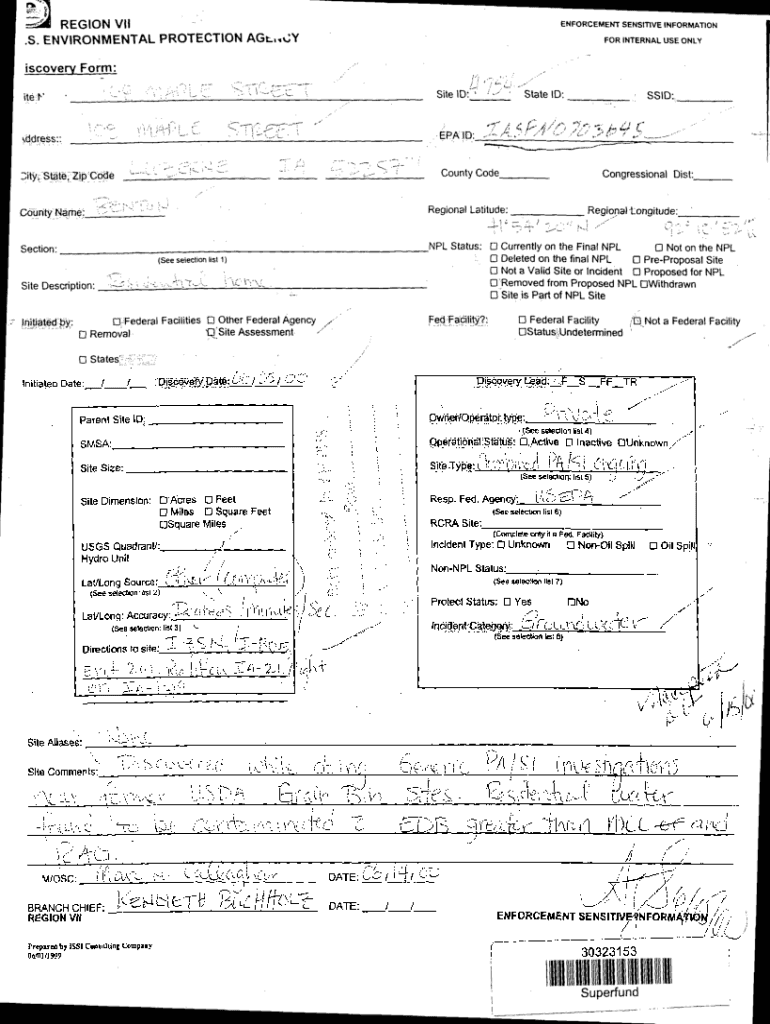 REGION VII
ENFORCEMENT SENSITIVE INFORMATION
.S. ENVIRONMENTAL PROTECTION AGENCY
FOR INTERNAL USE ONLY
iscovery Form:
108 MAPLE STREET Site ID: A754 State ID: SSID:
Address:: 108 MAPLE STREET EPA ID: IASFN0703645
City, State, Zip Code LUZERNE IA 52257 County Code Congressional Dist:
County Name: BENTON Regional Latitude: Regional Longitude:
41° 54' 20" N
Section: NPL Status: ☐ Currently on the Final NPL ☐ Not on the NPL
(See selection list 1) ☐ Deleted on the final NPL ☐ Pre-Proposal Site
☐ Not a Valid Site or Incident ☐ Proposed for NPL
Site Description: Residential home ☐ Removed from Proposed NPL ☐Withdrawn
☐ Site is Part of NPL Site
Initiated by: ☐ Federal Facilities ☐ Other Federal Agency Fed Facility?: ☐ Federal Facility ☐ Not a Federal Facility
☐ Removal ☐ Site Assessment ☐Status Undetermined
☐ States
Initiated Date: / / Discovery Date: Discovery Lead: F S FF TR
Parent Site ID: Owner/Operator type: Private
(See selection list 4)
SMSA: Operational Status: ☐ Active ☐ Inactive ☐Unknown
Site Size: Site Type: Combined PA/SI ongoing
(See selection list 5)
Site Dimension: ☐ Acres ☐ Feet Resp. Fed. Agency: USEPA
☐ Miles ☐ Square Feet (See selection list 6)
☐Square Miles RCRA Site:
(Complete only if a Fed. Facility)
USGS Quadrant/: / Incident Type: ☐ Unknown ☐ Non-Oil Spill ☐ Oil Spill
Hydro Unit
Non-NPL Status:
Lat/Long Source: Other (computer) (See selection list 7)
(See selection list 2)
Protect Status: ☐ Yes ☐No
Lat/Long: Accuracy: Degrees/minute/Sec.
(See selection list 3) Incident Category: Groundwater
(See selection list 8)
Directions to site:
Site Aliases: None
Site Comments: Discovered while doing Generic PA/SI investigations
near former USDA Grain Bin Sites. Residential water
found to be contaminated EDB greater than MCL and
RAG.
M/OSC: DATE: 06/14/00
BRANCH CHIEF: KENNETH BUCHHOLZ DATE: / /
REGION VII
ENFORCEMENT SENSITIVE INFORMATION
Prepared by ISSI Consulting Company
06/01/1999
30323153
Superfund